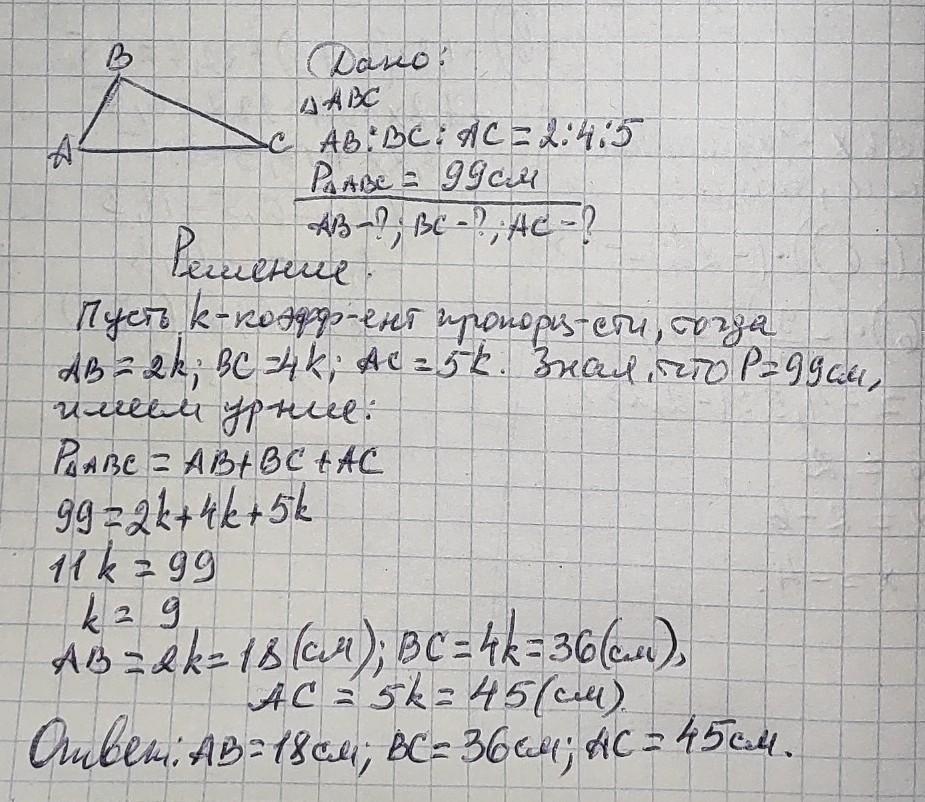 B
Дано:
△ABC
A
C
AB:BC:AC=2:4:5
P△ABC = 99см
AB-?; BC-?; AC-?
Решение.
Пусть k-коэфф-ент пропорц-сти, тогда
AB=2k; BC=4k; AC=5k. Зная, что P=99см,
имеем ур-ние:
P△ABC = AB+BC+AC
99=2k+4k+5k
11k = 99
k = 9
AB=2k=18(см); BC=4k=36(см),
AC = 5k=45(см).
Ответ: AB=18см; BC=36см; AC=45см.